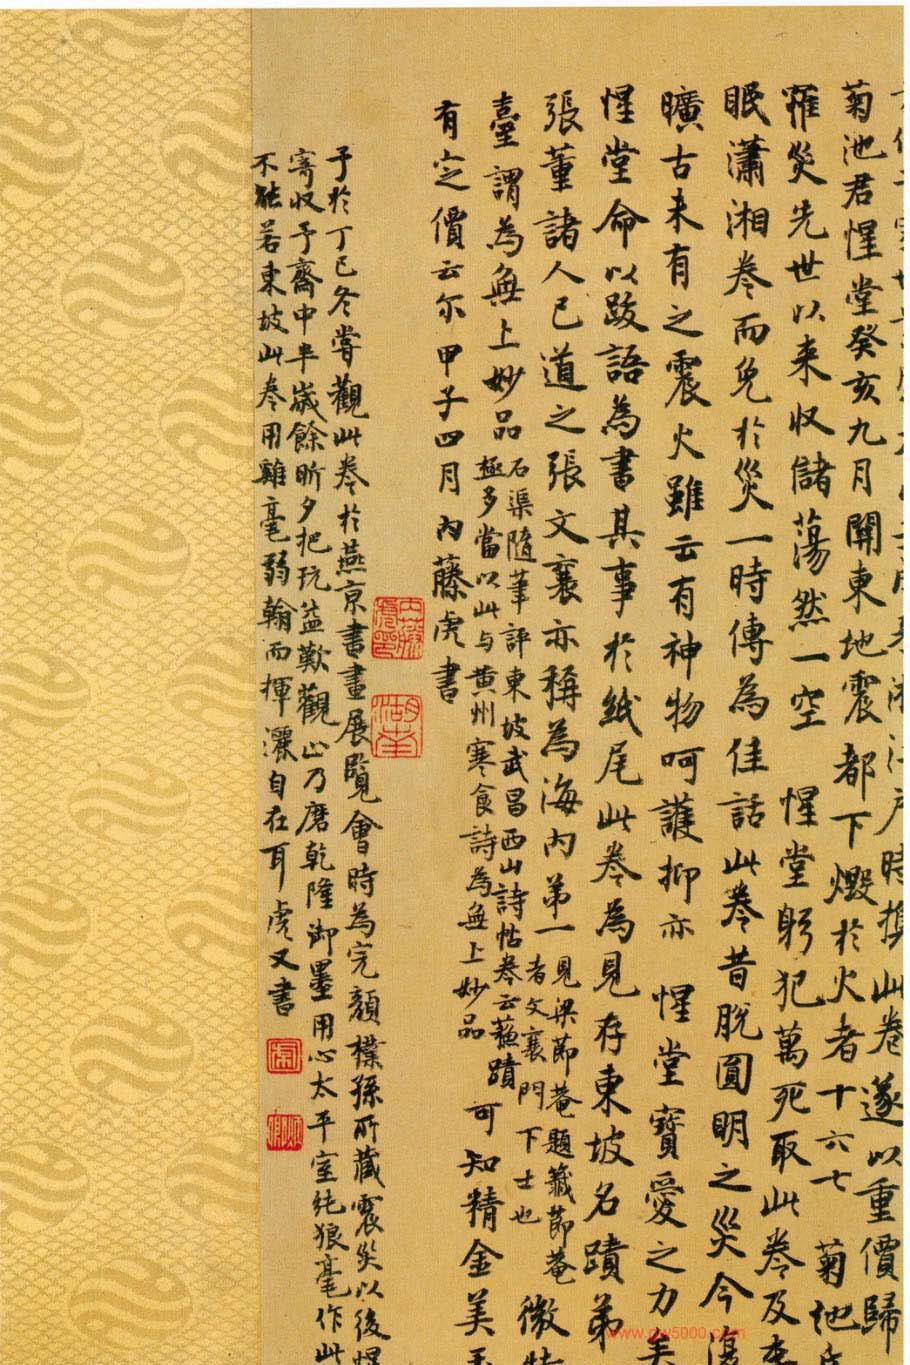 時攜此卷遂以重價歸
菊池君惺堂癸亥九月關東地震都下燬於火者十六七　菊池
罹災先世以來收儲蕩然一空　惺堂躬犯萬死取此卷及李
眠瀟湘卷而免於災一時傳為佳話此卷昔脫圓明之災今
曠古未有之震火雖云有神物呵護抑亦　惺堂寶愛之力矣
惺堂命以跋語為書其事於紙尾此卷為見存東坡名蹟弟
張董諸人已道之張文襄亦稱為海內弟一
見梁節菴題籤節菴
者文襄門下士也
微特
臺謂為無上妙品
石渠隨筆評東坡武昌西山詩帖卷云蘇蹟
極多當以此与黃州寒食詩為無上妙品
可知精金美玉
有定價云尒甲子四月內藤虎書
內藤虎印
湖南
予於丁巳冬嘗觀此卷於燕京書畫展覽會時為完顏樸孫所藏震災以後惺
寄收予齋中半歲餘昕夕把玩益歎觀止乃磨乾隆御墨用心太平室純狼毫作此
不能若東坡此卷用雞毫弱翰而揮灑自在耳虎又書
www.gw5000.com